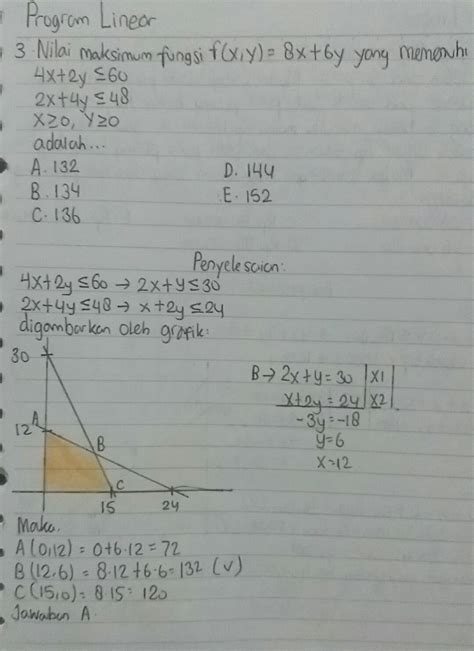 Program Linear
3. Nilai maksimum fungsi f(x,y) = 8x+6y yang memenuhi
4x+2y ≤ 60
2x+4y ≤ 48
x≥0, y≥0
adalah...
A. 132 D. 144
B. 134 E. 152
C. 136
Penyelesaian:
4x+2y ≤ 60 → 2x+y ≤ 30
2x+4y ≤ 48 → x+2y ≤ 24
digambarkan oleh grafik:
30
B → 2x+y = 30 | x1 |
x+2y = 24 | x2 |
-3y = -18
y = 6
x = 12
A
12
B
C
15 24
Maka,
A (0,12) = 0+6·12 = 72
B (12,6) = 8·12+6·6 = 132 (v)
C (15,0) = 8·15 = 120
Jawaban A.